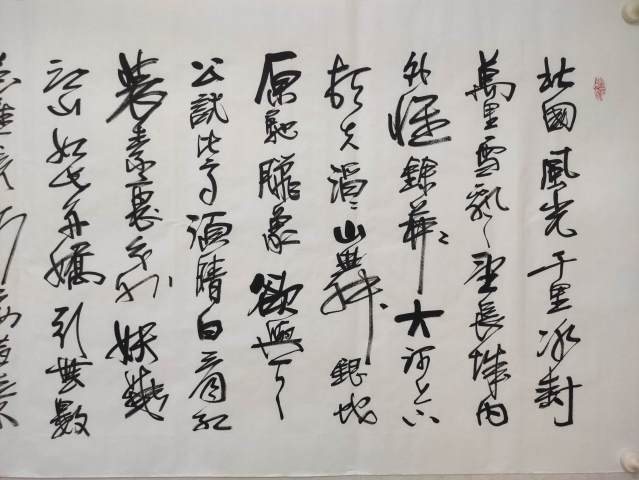 北國風光千里冰封
萬里雪飄望長城內
外惟餘莽々大河上下
頓失滔々山舞銀蛇
原馳臘象欲與天
公試比高須晴日看紅
裝素裹分外妖嬈
江山如此多嬌引無數